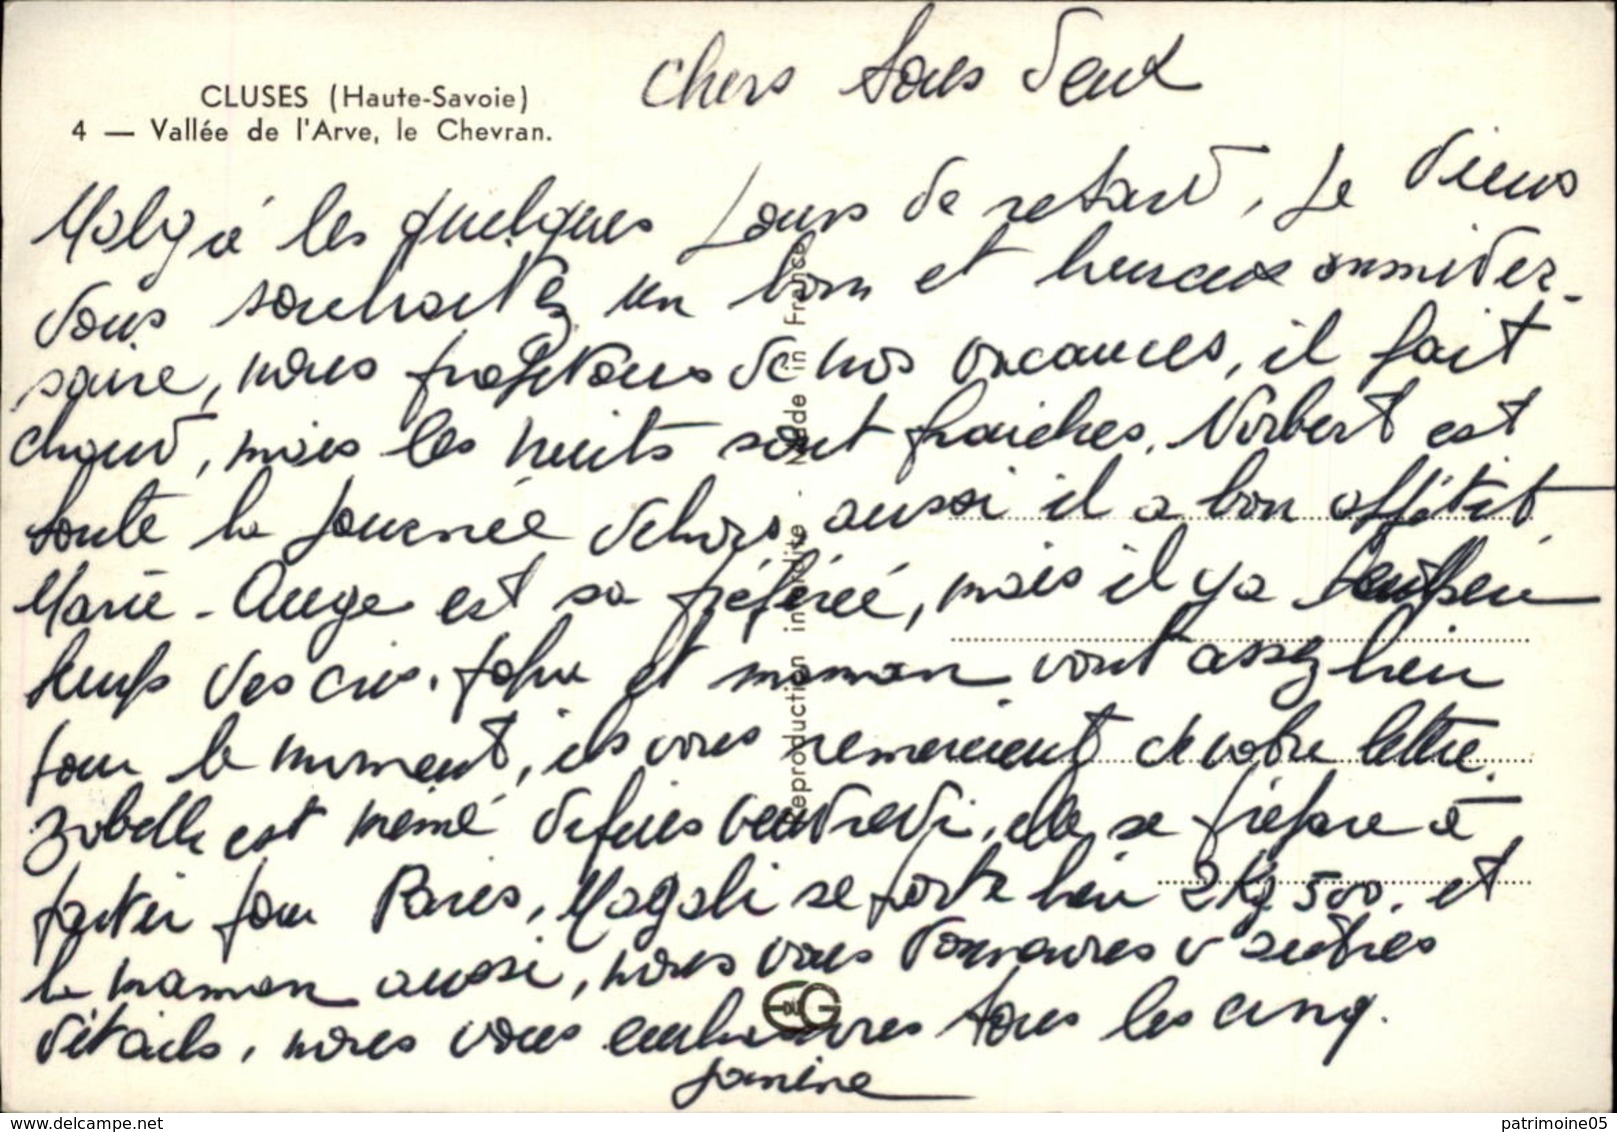 Chers tous deux
CLUSES (Haute-Savoie)
4 — Vallée de l'Arve, le Chevran.
Malgré les quelques jours de retard, je viens
vous souhaiter un bon et heureux anniver-
saire, nous profitons de nos vacances, il fait
chaud, mais les nuits sont fraiches. Norbert est
toute la journée dehors, aussi il a bon appétit.
Marie-Ange est sa préférée, mais il y a
temps des cris. John et maman vont assez bien
pour le moment, ils vous remercient de votre lettre.
est mémé depuis vendredi, elle se prépare à
partir pour Paris, Magali se porte bien 2 Kg 500. et
la maman aussi, nous vous donnerons d'autres
détails, nous vous embrassons tous les cinq.
Janine
Reproduction interdite - Made in France
patrimoine05